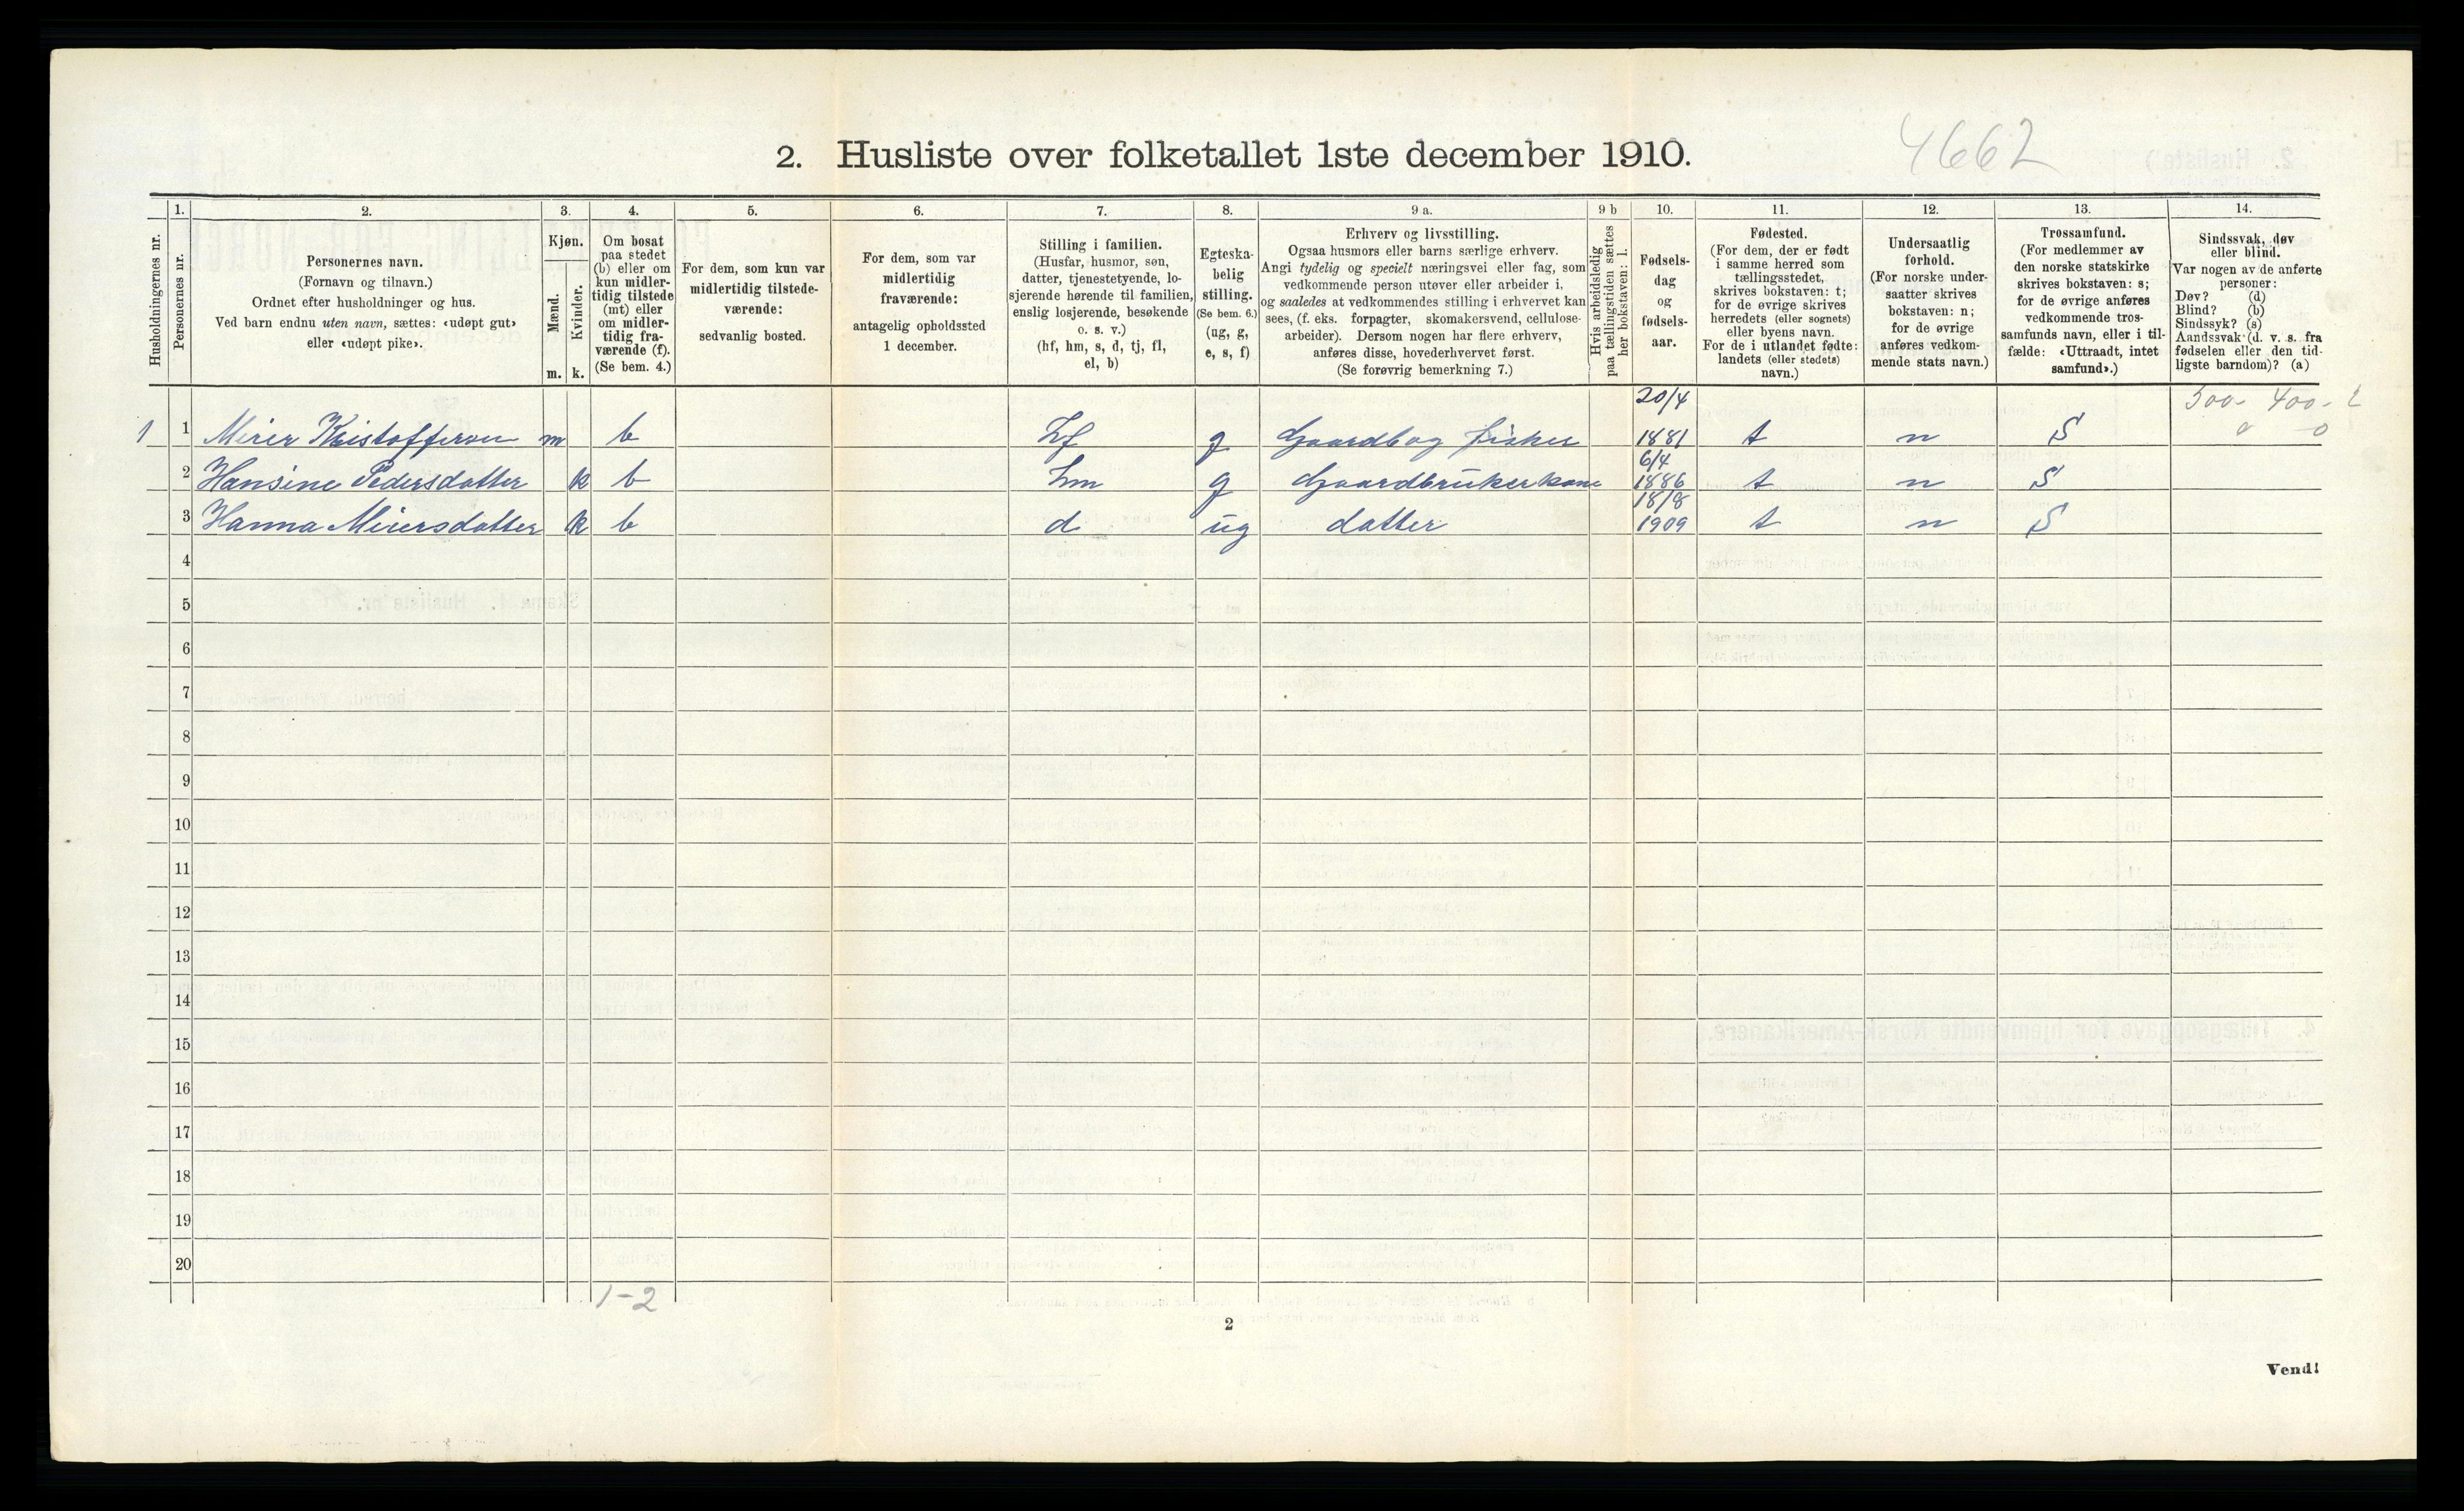 2. Husliste over folketallet 1ste december 1910.
4662
Husholdningernes nr.
1.
Personernes nr.
2.
Personernes navn.
(Fornavn og tilnavn.)
Ordnet efter husholdninger og hus.
Ved barn endnu uten navn, sættes: «udøpt gut»
eller «udøpt pike».
3.
Kjøn.
Mænd.
Kvinder.
m. k.
4.
Om bosat
paa stedet
(b) eller om
kun midler-
tidig tilstede
(mt) eller
om midler-
tidig fra-
værende (f).
(Se bem. 4.)
5.
For dem, som kun var
midlertidig tilstede-
værende:
sedvanlig bosted.
6.
For dem, som var
midlertidig
fraværende:
antagelig opholdssted
1 december.
7.
Stilling i familien.
(Husfar, husmor, søn,
datter, tjenestetyende, lo-
sjerende hørende til familien,
enslig losjerende, besøkende
o. s. v.)
(hf, hm, s, d, tj, fl,
el, b)
8.
Egteska-
belig
stilling.
(Se bem. 6.)
(ug, g,
e, s, f)
9 a.
Erhverv og livsstilling.
Ogsaa husmors eller barns særlige erhverv.
Angi tydelig og specielt næringsvei eller fag, som
vedkommende person utøver eller arbeider i,
og saaledes at vedkommendes stilling i erhvervet kan
sees, (f. eks. forpagter, skomakersvend, cellulose-
arbeider). Dersom nogen har flere erhverv,
anføres disse, hovederhvervet først.
(Se forøvrig bemerkning 7.)
9 b
Hvis arbeidsledig
paa tællingstiden sættes
her bokstaven: l.
10.
Fødsels-
dag
og
fødsels-
aar.
11.
Fødested.
(For dem, der er født
i samme herred som
tællingsstedet,
skrives bokstaven: t;
for de øvrige skrives
herredets (eller sognets)
eller byens navn.
For de i utlandet fødte:
landets (eller stedets)
navn.)
12.
Undersaatlig
forhold.
(For norske under-
saatter skrives
bokstaven: n;
for de øvrige
anføres vedkom-
mende stats navn.)
13.
Trossamfund.
(For medlemmer av
den norske statskirke
skrives bokstaven: s;
for de øvrige anføres
vedkommende tros-
samfunds navn, eller i til-
fælde: «Uttraadt, intet
samfund».)
14.
Sindssvak, døv
eller blind.
Var nogen av de anførte
personer:
Døv? (d)
Blind? (b)
Sindssyk? (s)
Aandssvak (d. v. s. fra
fødselen eller den tid-
ligste barndom)? (a)
500- 400- 2
0 0
20/4
1 1 Meier Kristoffersen m b hf g Gaardb og fisker 1881 t n S
6/4
2 Hansine Pedersdatter k b hm g Gaardbrukerkone 1886 t n S
18/8
3 Hanna Meiersdatter k b d ug datter 1909 t n S
4
5
6
7
8
9
10
11
12
13
14
15
16
17
18
19
20
1-2
2
Vend!